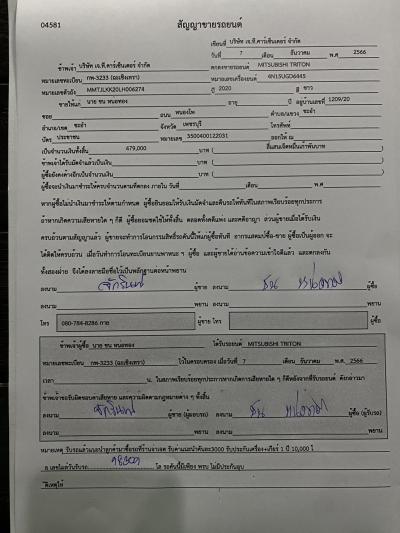 04581 สัญญาขายรถยนต์
เขียนที่ บริษัท เจ.ที.คาร์เซ็นเตอร์ จำกัด
วันที่ 7 เดือน ธันวาคม พ.ศ 2566
ข้าพเจ้า บริษัท เจ.ที.คาร์เซ็นเตอร์ จำกัด ตกลงขายรถยนต์ MITSUBISHI TRITON
หมายเลขทะเบียน กพ-3233 (ฉะเชิงเทรา) หมายเลขเครื่องยนต์ 4N15UGD6445
หมายเลขตัวถัง MMTJLKK20LH006274 ปี 2020 สี ขาว
ขายให้แก่ นาย ชน พนอทอง อายุ ปี อยู่บ้านเลขที่ 1209/20
ซอย ถนน พนองโพ ตำบล/แขวง ชะอำ
อำเภอ/เขต ชะอำ จังหวัด เพชรบุรี โทรศัพท์
บัตร ประชาชน หมายเลข 3500400122031 ออกให้ ณ
เป็นจำนวนเงินทั้งสิ้น 479,000 บาท ( สี่แสนเจ็ดหมื่นเก้าพันบาท )
ข้าพเจ้าได้รับมัดจำแล้วเป็นเงิน บาท ( )
ผู้ซื้อยังคงค้างอีกเป็นจำนวนเงิน บาท ( )
ผู้ซื้อจะนำเงินมาชำระให้ครบจำนวนตามที่ตกลง ภายใน วันที่ เดือน พ.ศ
หากผู้ซื้อไม่นำเงินมาชำระตามกำหนด ผู้ซื้อยินยอมให้รับเงินมัดจำและคืนรถให้ทันทีในสภาพเรียบร้อยทุกประการ
ถ้าหากเกิดความเสียหายใด ๆ ก็ดี ผู้ซื้อยอมชดใช้ให้ทั้งสิ้น ตลอดทั้งคดีแพ่ง และคดีอาญา ส่วนผู้ขายเมื่อได้รับเงิน
ครบถ้วนตามสัญญาแล้ว ผู้ขายจะทำการโอนกรรมสิทธิ์รถคันนี้ให้แก่ผู้ซื้อทันที อากรแสตมป์ซื้อ-ขาย ผู้ซื้อเป็นผู้ออก จะ
ได้ติดให้ครบถ้วน เมื่อวันทำการโอนทะเบียนยานพาหนะ ฯ ผู้ซื้อ และผู้ขายได้อ่านข้อความเข้าใจดีแล้ว และตกลงกัน
ทั้งสองฝ่าย จึงได้ลงลายมือชื่อไว้เป็นหลักฐานต่อหน้าพยาน
ลงนาม ผู้ขาย ลงนาม ผู้ซื้อ
ลงนาม พยาน ลงนาม พยาน
โทร 080-784-8286 กาย ผู้ขาย โทร ผู้ซื้อ
ข้าพเจ้าผู้ซื้อ นาย ชน พนอทอง ได้รับรถยนต์ MITSUBISHI TRITON
หมายเลขทะเบียน กพ-3233 (ฉะเชิงเทรา) ไว้ในครอบครอง เมื่อวันที่ 7 เดือน ธันวาคม พ.ศ. 2566
เวลา น. ในสภาพเรียบร้อยทุกประการหากเกิดการเสียหายใด ๆ ก็ดีหลังจากที่รับรถยนต์ ดังกล่าวมา
ข้าพเจ้าขอรับผิดชอบค่าเสียหาย และความผิดตามกฎหมายต่าง ๆ ทั้งสิ้น
ลงนาม ผู้ขาย (ผู้มอบรถ) ลงนาม ผู้ซื้อ (ผู้รับรถ)
ลงนาม พยาน ลงนาม พยาน
หมายเหตุ รับรถแล้วแนะนำลูกค้ามาซื้อรถที่ร้านจ่ายเงิน รับค่าแนะนำคันละ3000 รับประกันเครื่อง+เกียร์ 1 ปี 10,000 โ
ล เลขไมล์วันรับรถ 98309 โล รถคันนี้มีเพียง พรบ ไม่มีประกันอุบ